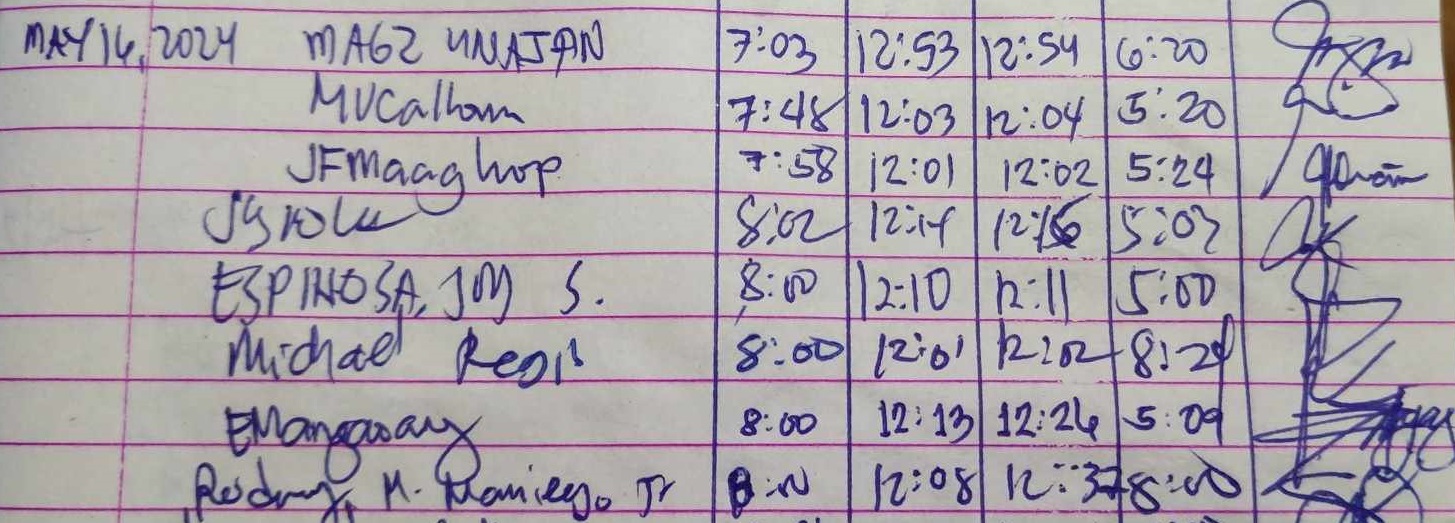 MAY 16, 2024 MAGZ UNAJAN 7:03 12:53 12:54 6:20
MVCalham 7:48 12:03 12:04 5:20
JFMaaghop 7:58 12:01 12:02 5:24
8:02 12:14 5:03
ESPINOSA, JM S. 8:00 12:10 12:11 5:00
Michael Regis 8:00 12:01 12:02 8:29
8:00 12:13 12:26 5:09
M. Maniego Jr 12:08 12:37 8:00